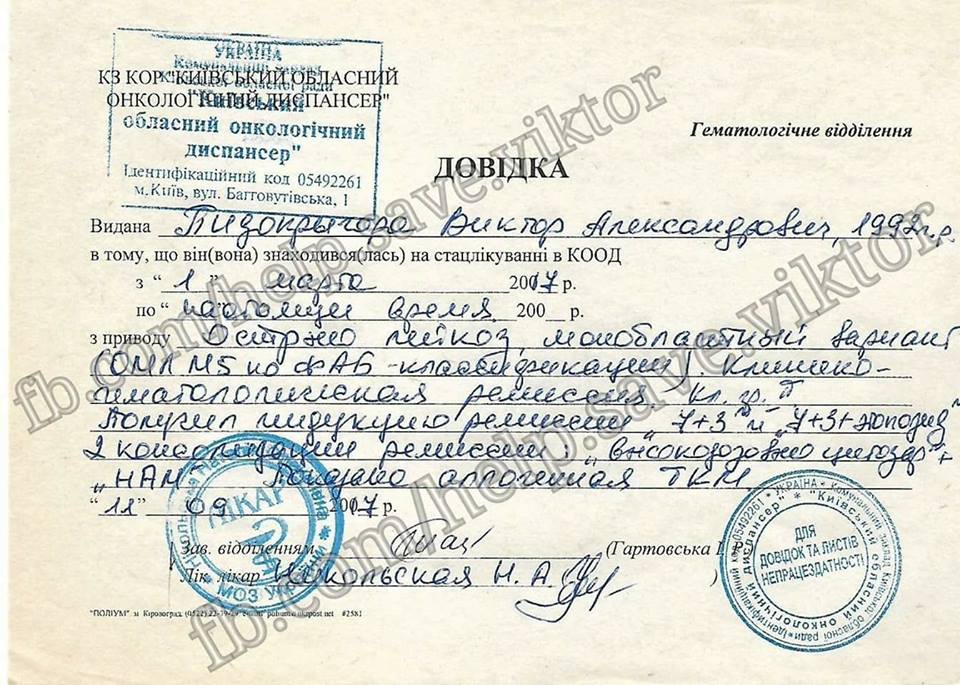 УКРАЇНА
"Київський
обласний онкологічний
диспансер"
Ідентифікаційний код 05492261
м.Київ, вул. Багговутівська, 1
КЗ КОР "КИЇВСЬКИЙ ОБЛАСНИЙ
ОНКОЛОГІЧНИЙ ДИСПАНСЕР"
Гематологічне відділення
ДОВІДКА
Видана Пизокрычора Виктор Александрович, 1992 г.р.
в тому, що він(вона) знаходився(лась) на стацлікуванні в КООД
з "1" марта 2017 р.
по " настоящи время. 200__ р.
з приводу Остржо лейкоз, монобластный вариант
(ОМЛ М5 по ФАБ-классификации) клинико-
гематологическая ремиссия. Кл. гр. II
Получил индукцию ремиссии "7+3" и "7+3+этопозид"
2 консолидации ремиссии: "высокодозно цитозар" +
"НАМ" Показано аллогенная ТКМ
"11" 09 2017 р.
Зав. відділенням (Гартовська І
Лік. лікар Никольская Н. А.
ЛІКАР
МОЗ України
ДЛЯ
ДОВІДОК ТА ЛИСТІВ
НЕПРАЦЕЗДАТНОСТІ
УКРАЇНА * Комунальний заклад Київської обласної ради * Ідентифікаційний код 05492261
"Київський обласний онкологічний диспансер"
"ПОЛІУМ" м Кіровоград, (0522) #2581
fb.com/help.save.viktor
fb.com/help.save.viktor